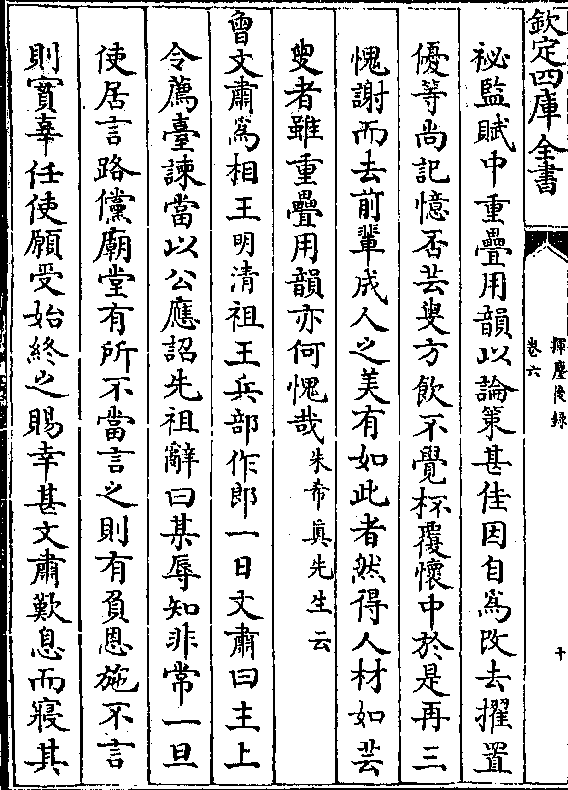 欽定四庫全書
揮麈後錄
卷六
十
秘監賦中重疊用韻以論策甚佳因自爲改去擢置
優等尚記憶否芸叟方飲不覺杯覆懷中於是再三
愧謝而去前輩成人之美有如此者然得人材如芸
叟者雖重疊用韻亦何愧哉朱希真先生云
曾文肅爲相王明清祖王兵部作郎一日文肅曰主上
令薦臺諫當以公應詔先祖辭曰某辱知非常一旦
使居言路儻廟堂有所不當言之則有負恩施不言
則實辜任使願受始終之賜幸甚文肅歎息而寢其